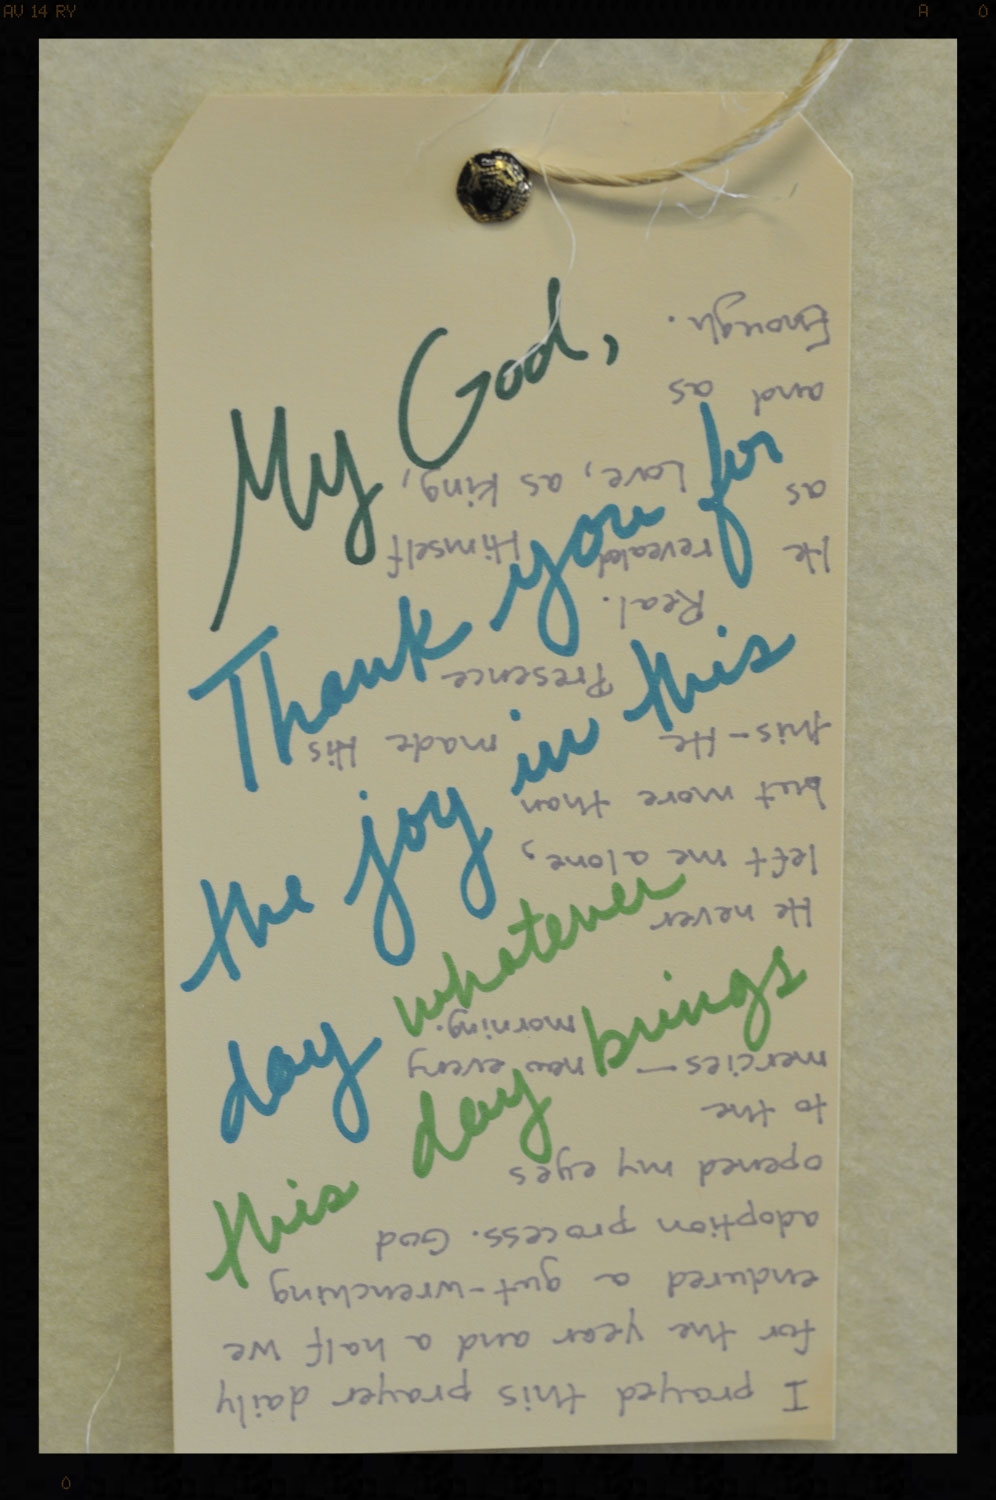 AV 14 RY
A
0
My God,
Thank you for
the joy in this
day whatever
this day brings
I prayed this prayer daily
for the year and a half we
endured a gut-wrenching
adoption process. God
opened my eyes
to the
mercies — new every
morning.
He never
left me alone,
but more than
this - He made His
Presence
Real.
He revealed Himself
as Love, as King,
and as
Enough.
0